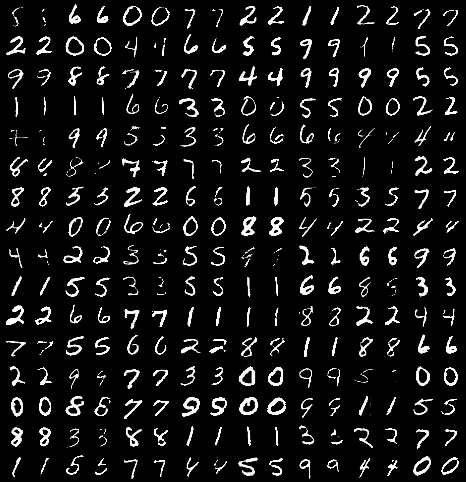 5 5 6 6 0 0 7 7 2 2 1 1 2 2 7 7
2 2 0 0 4 4 6 6 5 5 9 9 1 1 5 5
9 9 8 8 7 7 7 7 4 4 9 9 9 9 5 5
1 1 1 1 6 6 3 3 0 0 5 5 0 0 2 2
7 9 9 5 5 3 3 6 6 6 6 4 4 4
8 8 8 7 7 7 7 2 2 3 3 1 1 2 2
8 8 5 5 2 2 6 6 1 1 5 5 3 5 7 7
4 4 0 0 6 6 0 0 8 8 4 4 2 2 4 4
4 4 2 2 3 3 5 5 9 2 2 6 6 9 9
1 1 5 5 3 3 5 5 1 1 6 6 8 8 3 3
2 2 6 6 7 7 1 1 1 1 8 8 2 2 4 4
7 7 5 5 6 6 2 2 8 8 1 1 8 8 6 6
2 2 9 9 7 7 3 3 0 0 9 9 5 0 0
0 0 8 8 7 7 9 9 0 0 9 9 1 1 5 5
8 8 3 3 8 8 1 1 1 1 3 3 2 2 7 7
1 1 5 5 7 7 4 4 5 5 9 9 4 4 0 0